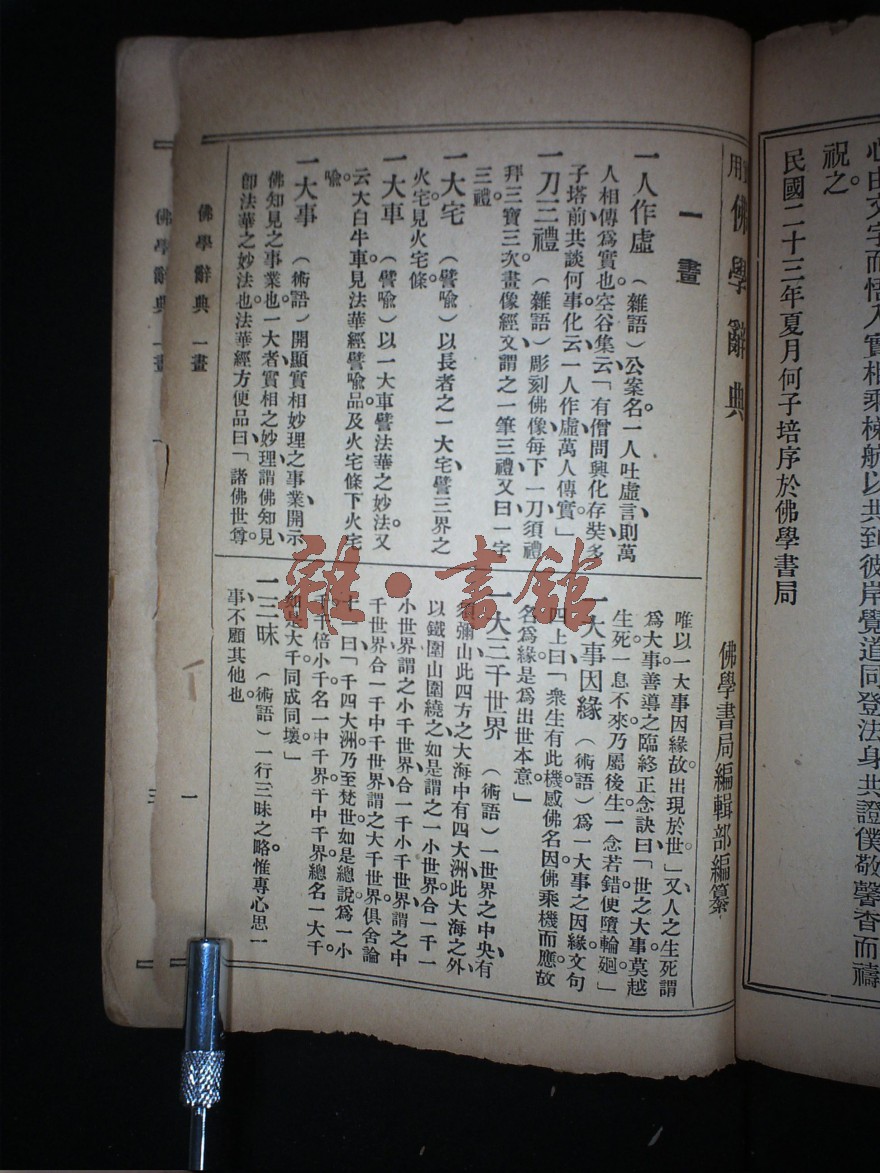 心由文字而悟入實相乘梯航以共到彼岸覺道同登法身共證僕敬馨香而禱
祝之
民國二十三年夏月何子培序於佛學書局
用佛學辭典
佛學書局編輯部編纂
一畫
一人作虛 (雜語)公案名。一人吐虛言、則萬
人相傳爲實也。空谷集云「有僧問興化存奘、多
子塔前共談何事、化云一人作虛、萬人傳實。」
一刀三禮 (雜語)彫刻佛像、每下一刀須禮
拜三寶三次、畫像經文謂之一筆三禮、又曰一字
三禮。
一大宅 (譬喩)以長者之一大宅、譬三界之
火宅。見火宅條。
一大車 (譬喩)以一大車譬法華之妙法。又
云大白牛車。見法華經譬喩品、及火宅條下火宅
喩。
一大事 (術語)開顯實相妙理之事業、開示
佛知見之事業也。一大者實相之妙理、謂佛知見、
卽法華之妙法也。法華經方便品曰、「諸佛世尊
唯以一大事因緣、故出現於世」又人之生死、謂
爲大事。善導之臨終正念訣曰、「世之大事、莫越
生死、一息不來、乃屬後生、一念若錯、便墮輪廻。」
一大事因緣 (術語)爲一大事之因緣。文句
四上曰、「衆生有此機感佛、名因。佛乘機而應、故
名爲緣。是爲出世本意。」
一大三千世界 (術語)一世界之中央、有
須彌山、此四方之大海中有四大洲、此大海之外、
以鐵圍山圍繞之、如是謂之一小世界。合一千一
小世界、謂之小千世界、合一千小千世界、謂之中
千世界、合一千中千世界、謂之大千世界。俱舍論
十一曰、「千四大洲乃至梵世、如是總說爲一小
千。千倍小千名一中千界。千中千界總名一大千
如是大千同成同壞。」
一三昧 (術語)一行三昧之略。惟專心思一
事、不顧其他也。
一
佛學辭典 一畫
佛學辭典 一畫
三
雜·書館